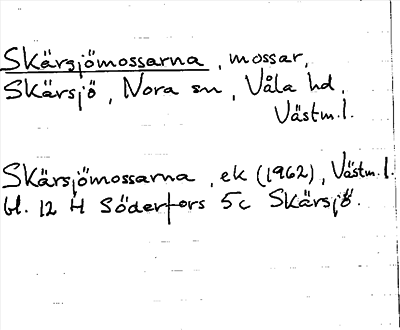 Skärsjömossarna, mossar,
Skärsjö, Nora sn, Våla hd,
Västm.l.
Skärsjömossarna, ek (1962), Västm.l.
bl. 12 H Söderfors 5c Skärsjö.